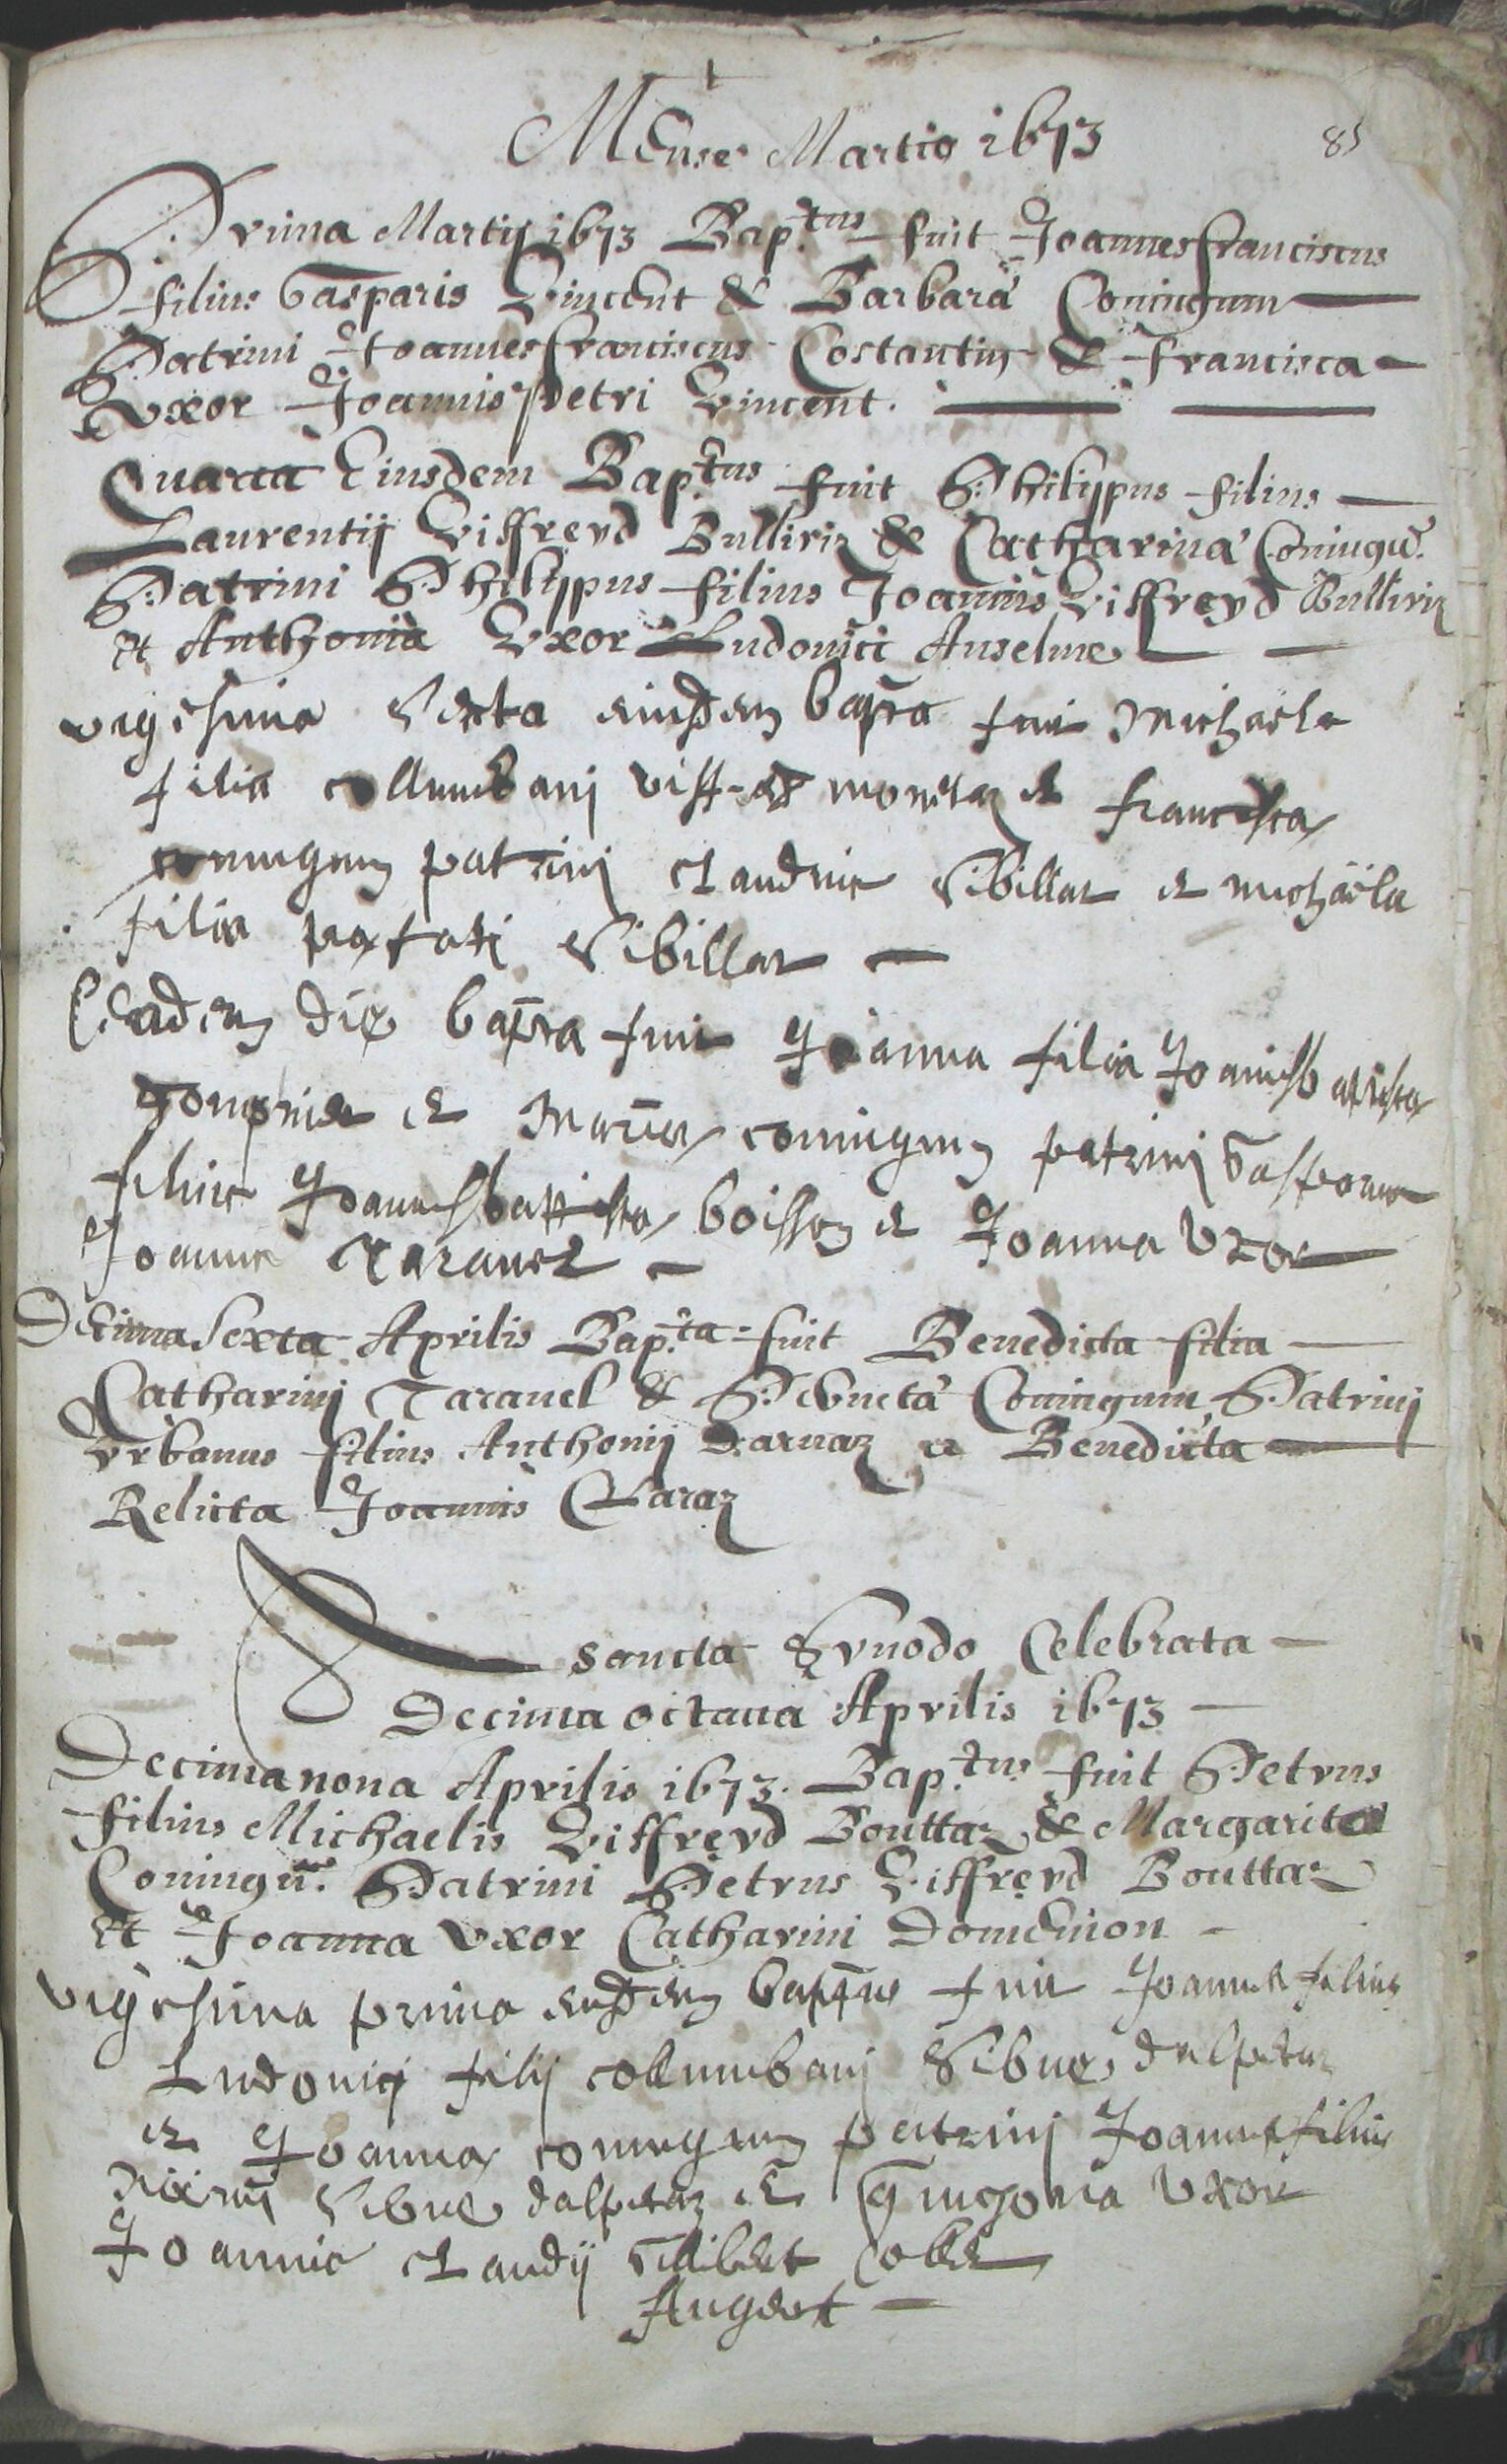 Mense Martio 1673
85
Prima Martij 1673 Bap.tus fuit Joannes franciscus
filius Gasparis Vincent & Barbara Coniugum
Patrini Joannes franciscus Costantin & Francisca
Vxor Joannis petri Vincent.
Quarta Eiusdem Bap.tus fuit Philippus filius
Laurentij Viffreyd Bulliriz & Catharina Coniugū.
Patrini Philippus filius Joannis Viffreyd Bulliriz
et Anthonia Vxor Ludouici Anselme
vigesima sexta eiusdem bapta fuit Michaela
filia collumbani viffred et francisca
coniugum patrini Claudius Sibillat et michaela
filia prefati Sibillat
Eadem die bapta fuit Joanna filia Joannisbaptista
et Maria coniugum patrini Gasparus
filius Joannisbaptista boisson et Joanna Vxor
Joannis Tarauel
Decima sexta Aprilis Bap.ta fuit Benedicta filia
Catharinj Tarauel & Coniugum Patrinj
Vrbanus filius Anthonij Darnaz et Benedicta
Relicta Joannis Claraz
A sancta Synodo Celebrata
Decima octaua Aprilis 1673
Decima nona Aprilis 1673. Bap.tus fuit Petrus
filius Michaelis Viffreyd Bouttaz & Margarita
Coniugū. Patrini Petrus Viffreyd Bouttaz
et Joanna vxor Catharini Domeinon
vigesima prima eiusdem baptus fuit Joannes filius
Ludouicj filij collumbanj Sibue dalpetaz
et Joanna coniugum patrinj Joannes filius
Sibue dalpetaz et Vxor
Joannis Claudij